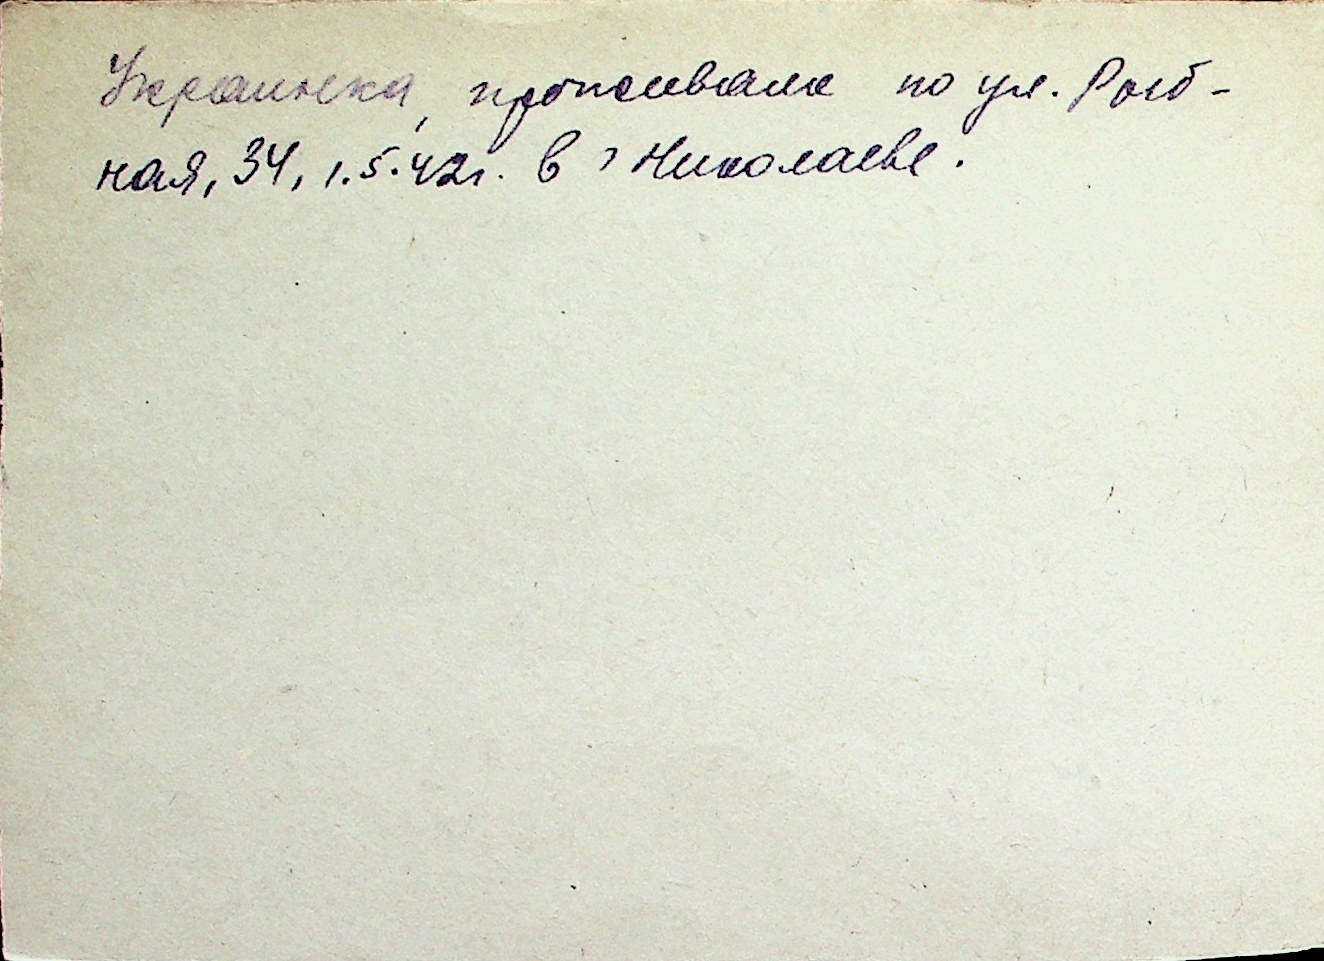 Украинка, проживала по ул. Рыб-
ная, 34, 1.5.42г. в г Николаеве.